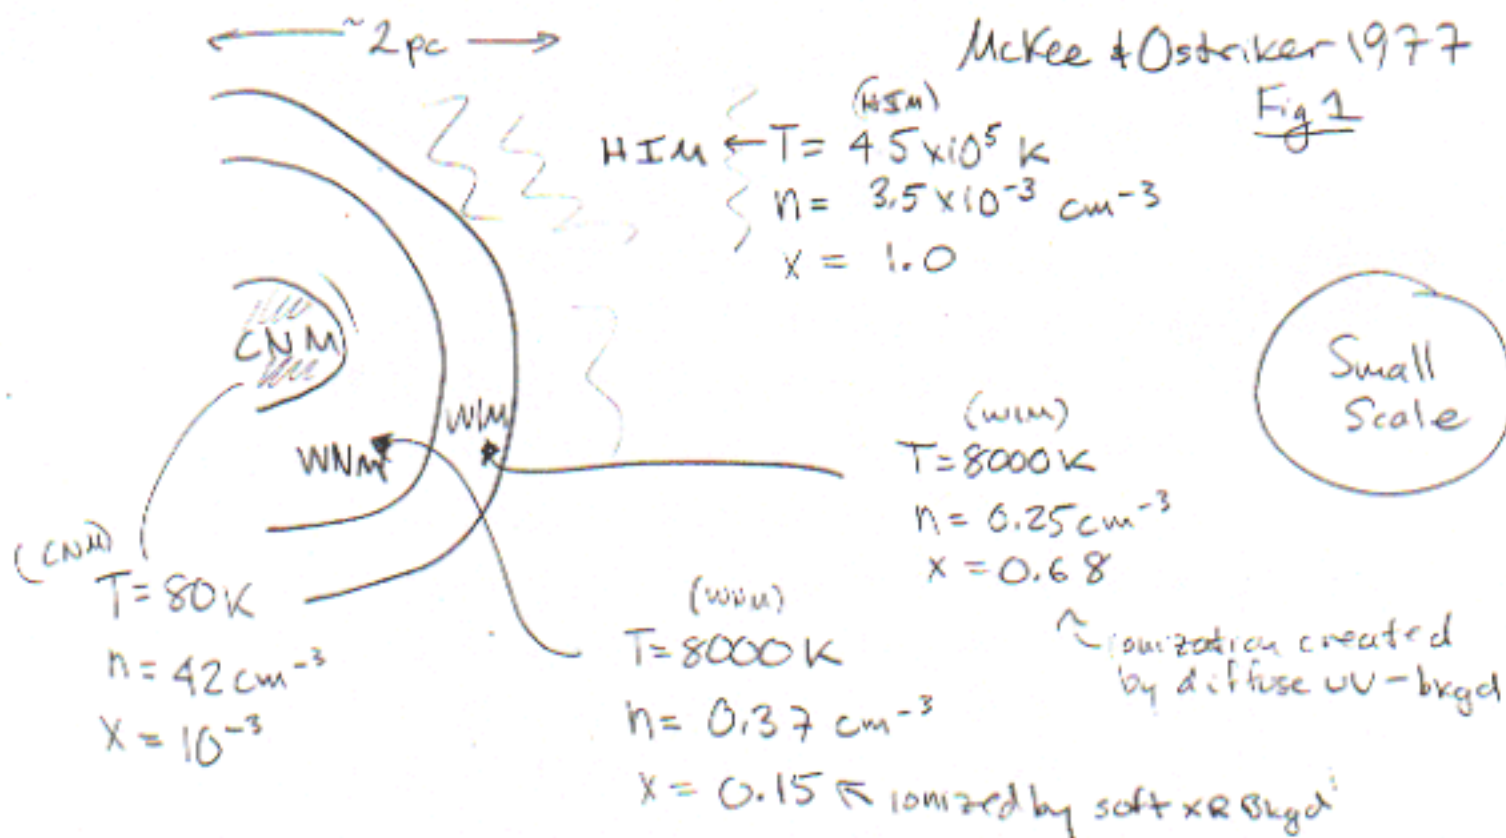 ~2pc
McKee & Ostriker 1977
Fig 1
(HIM)
HIM ← T = 4.5 x10⁵ K
n = 3.5 x10⁻³ cm⁻³
x = 1.0
CNM
WNM
WIM
Small
Scale
(WIM)
T=8000K
n= 0.25cm⁻³
x = 0.68
~ ionization created
by diffuse UV-bkgd
(CNM)
T= 80K
n= 42cm⁻³
X = 10⁻³
(WNM)
T=8000K
n= 0.37 cm⁻³
x = 0.15 ↖ ionized by soft XR Bkgd